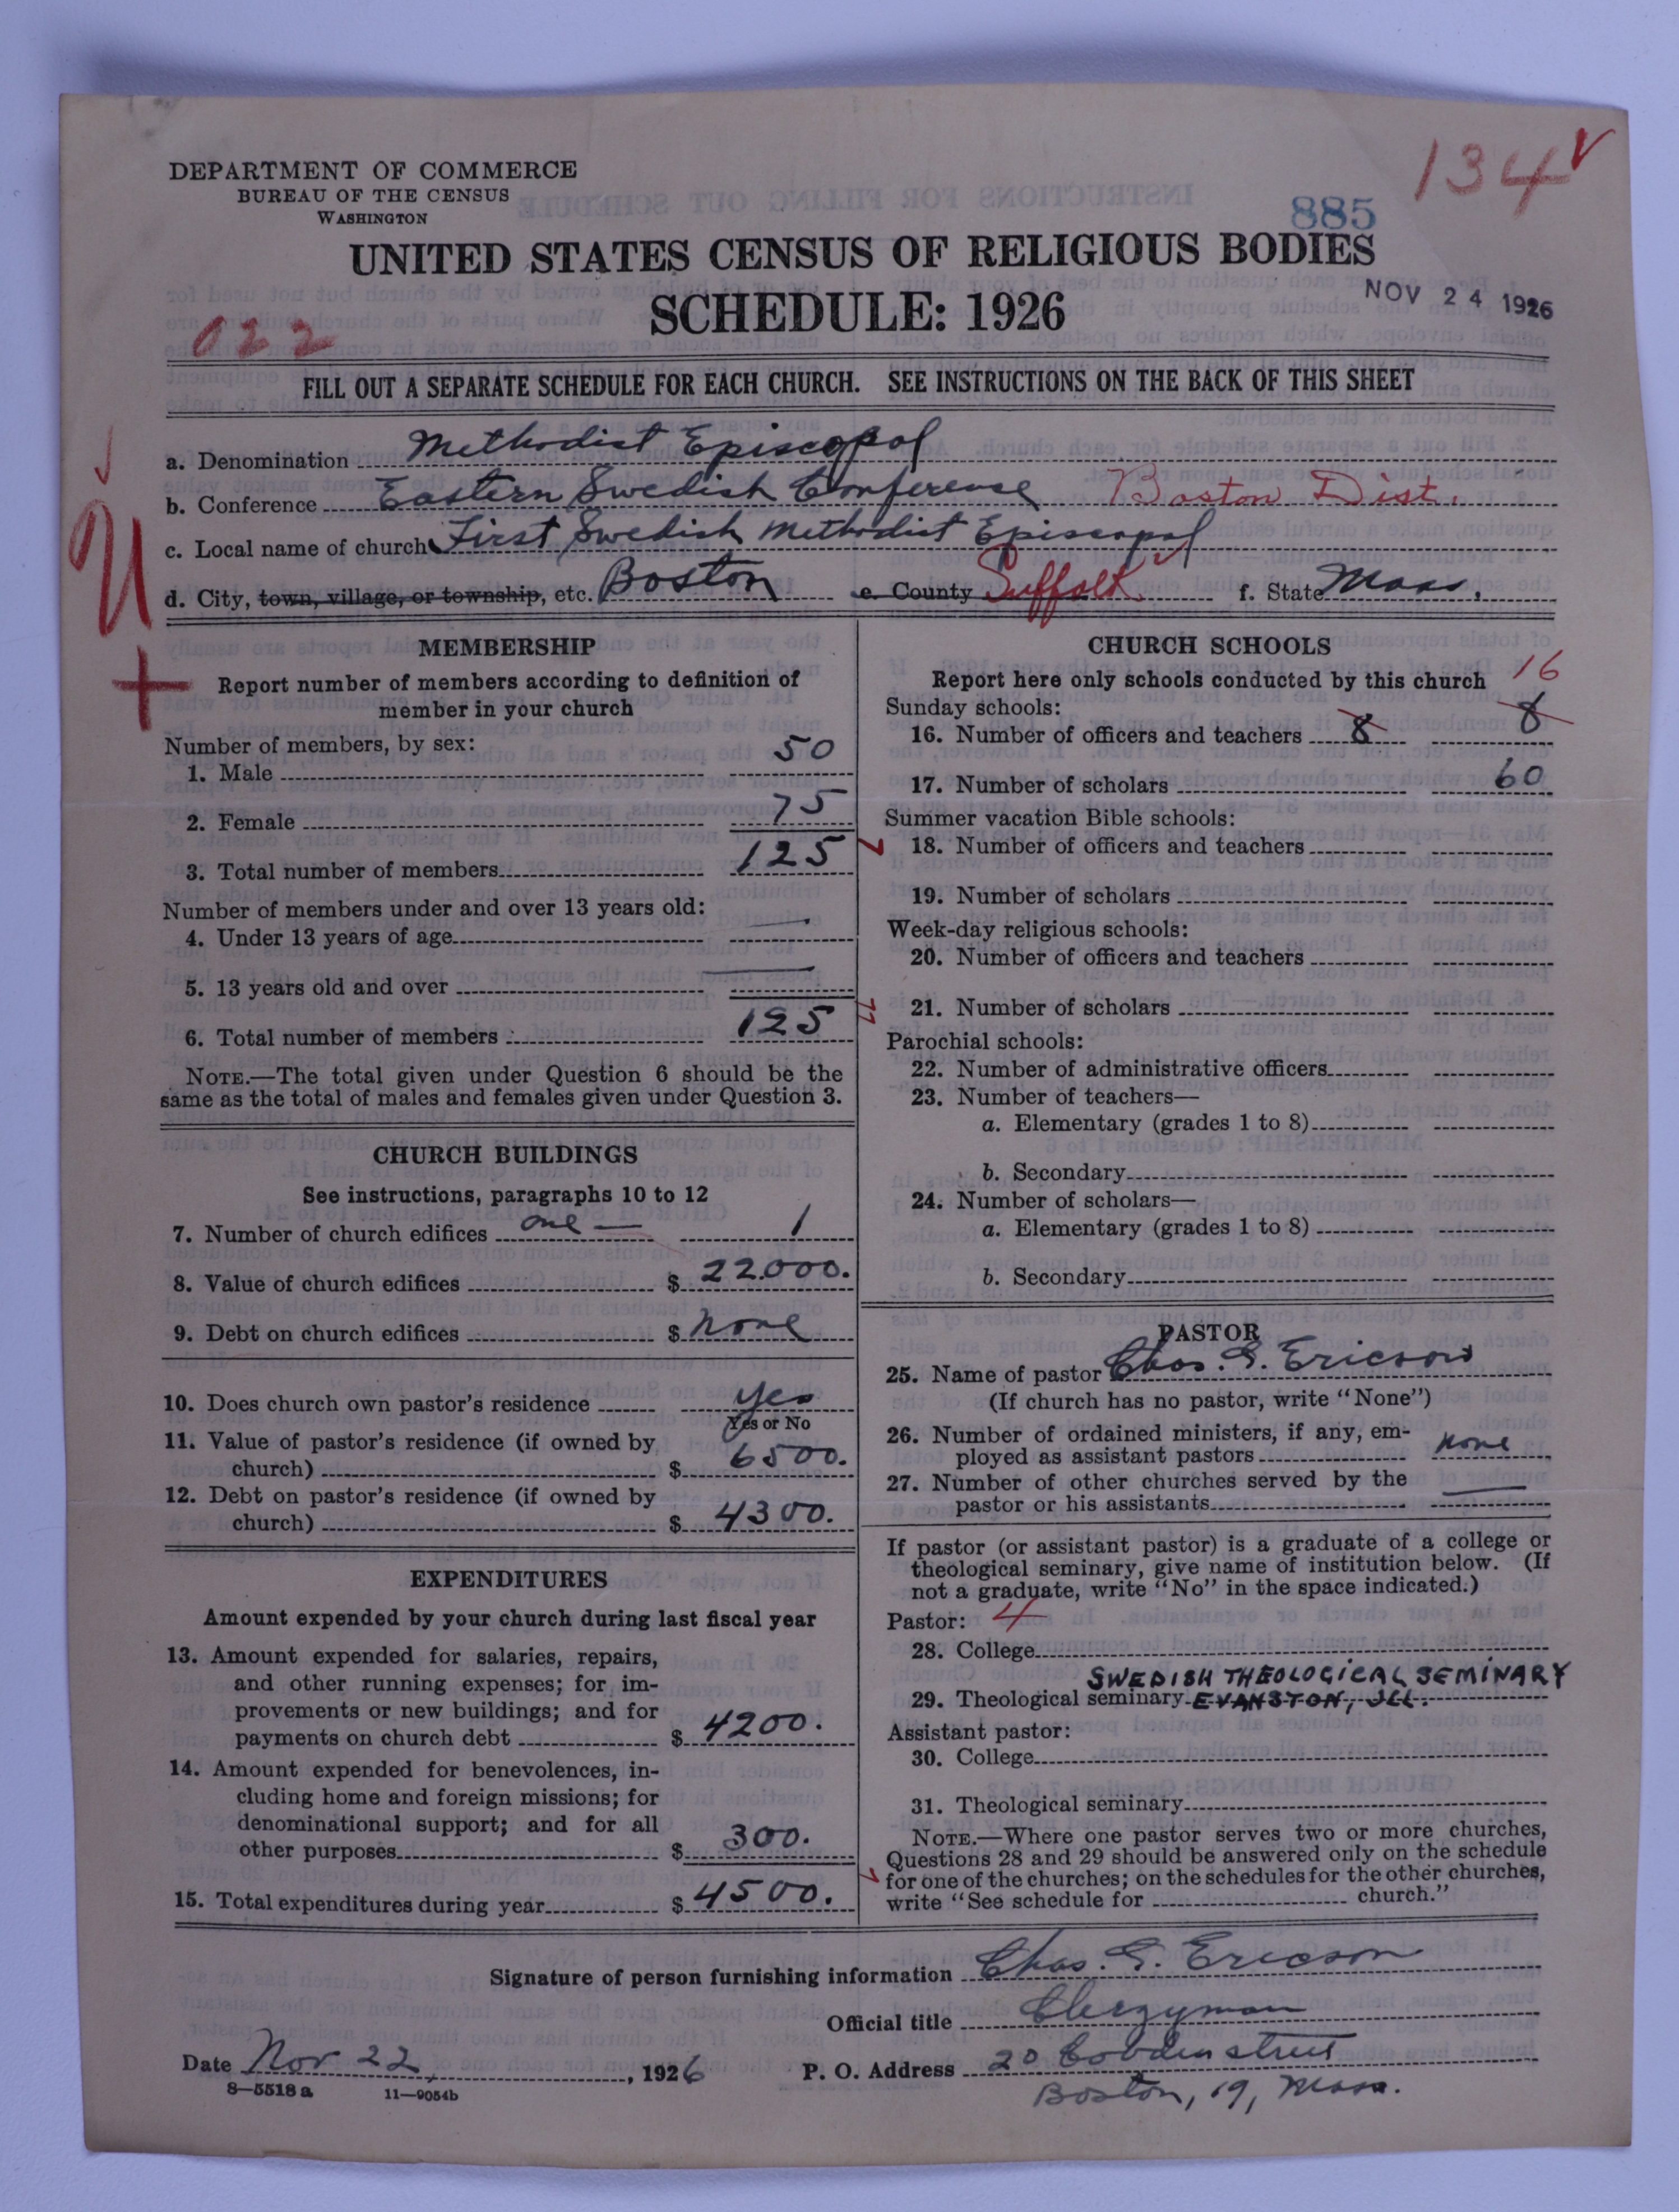 134 ✓
DEPARTMENT OF COMMERCE
BUREAU OF THE CENSUS
WASHINGTON
885
UNITED STATES CENSUS OF RELIGIOUS BODIES
SCHEDULE: 1926
NOV 24 1926
022
FILL OUT A SEPARATE SCHEDULE FOR EACH CHURCH. SEE INSTRUCTIONS ON THE BACK OF THIS SHEET
a. Denomination Methodist Episcopal
b. Conference Eastern Swedish Conference Boston Dist.
c. Local name of church First Swedish Methodist Episcopal
d. City, town, village, or township, etc. Boston e. County Suffolk f. State Mass.
U
+
MEMBERSHIP
Report number of members according to definition of
member in your church
Number of members, by sex:
1. Male 50
2. Female 75
3. Total number of members 125
Number of members under and over 13 years old:
4. Under 13 years of age
5. 13 years old and over
6. Total number of members 125
NOTE.—The total given under Question 6 should be the
same as the total of males and females given under Question 3.
CHURCH BUILDINGS
See instructions, paragraphs 10 to 12
7. Number of church edifices one — 1
8. Value of church edifices $ 22.000.
9. Debt on church edifices $ None
10. Does church own pastor's residence yes
Yes or No
11. Value of pastor's residence (if owned by
church) $ 6500.
12. Debt on pastor's residence (if owned by
church) $ 4300.
EXPENDITURES
Amount expended by your church during last fiscal year
13. Amount expended for salaries, repairs,
and other running expenses; for im-
provements or new buildings; and for
payments on church debt $ 4200.
14. Amount expended for benevolences, in-
cluding home and foreign missions; for
denominational support; and for all
other purposes $ 300.
15. Total expenditures during year $ 4500.
CHURCH SCHOOLS
Report here only schools conducted by this church
16
Sunday schools:
16. Number of officers and teachers 8 8
17. Number of scholars 60
Summer vacation Bible schools:
18. Number of officers and teachers
19. Number of scholars
Week-day religious schools:
20. Number of officers and teachers
21. Number of scholars
Parochial schools:
22. Number of administrative officers
23. Number of teachers—
a. Elementary (grades 1 to 8)
b. Secondary
24. Number of scholars—
a. Elementary (grades 1 to 8)
b. Secondary
PASTOR
25. Name of pastor Chas. G. Ericson
(If church has no pastor, write "None")
26. Number of ordained ministers, if any, em-
ployed as assistant pastors none
27. Number of other churches served by the
pastor or his assistants
If pastor (or assistant pastor) is a graduate of a college or
theological seminary, give name of institution below. (If
not a graduate, write "No" in the space indicated.)
Pastor: 4
28. College
SWEDISH THEOLOGICAL SEMINARY
29. Theological seminary EVANSTON, ILL.
Assistant pastor:
30. College
31. Theological seminary
NOTE.—Where one pastor serves two or more churches,
Questions 28 and 29 should be answered only on the schedule
for one of the churches; on the schedules for the other churches,
write "See schedule for church."
Signature of person furnishing information Chas. G. Ericson
Official title Clergyman
Date Nov 22, 1926 P. O. Address 20 Cobden street
8—5518 a 11—9054b
Boston, 19, Mass.